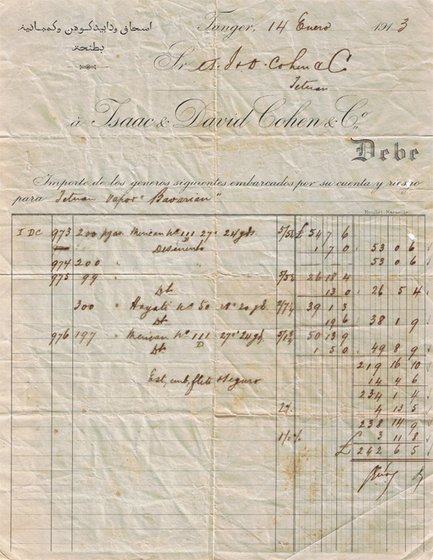 اسحاق ودابيد كوهن وكمبانية
بطنجة
Tanger, 14 Enero 1913
Sr. I & D. Cohen & C
Tetuan
á Isaac & David Cohen & Co.
Debe
Importe de los géneros siguientes embarcados por su cuenta y riesgo
para Tetuan vapor "Bavarian"
I DC 973 200 Mexican No 111 27" 24 yds £ 54 7 6
Descuento 1 7 0 53 0 6
974 200 " 53 0 6
975 99 " 26 18 4
Dt. 13 0 26 5 4
300 " Hayati No 50 20 yds 39 1 3
Dt. 19 6 38 1 9
976 197 " Mexican No 111 27" 24 yds 50 13 9
Dt. 1 5 0 49 8 9
219 16 10
Est, emb, flete & Seguro 14 4 6
234 1 4
2% 4 13 5
238 14 9
3 11 8
£ 242 6 5